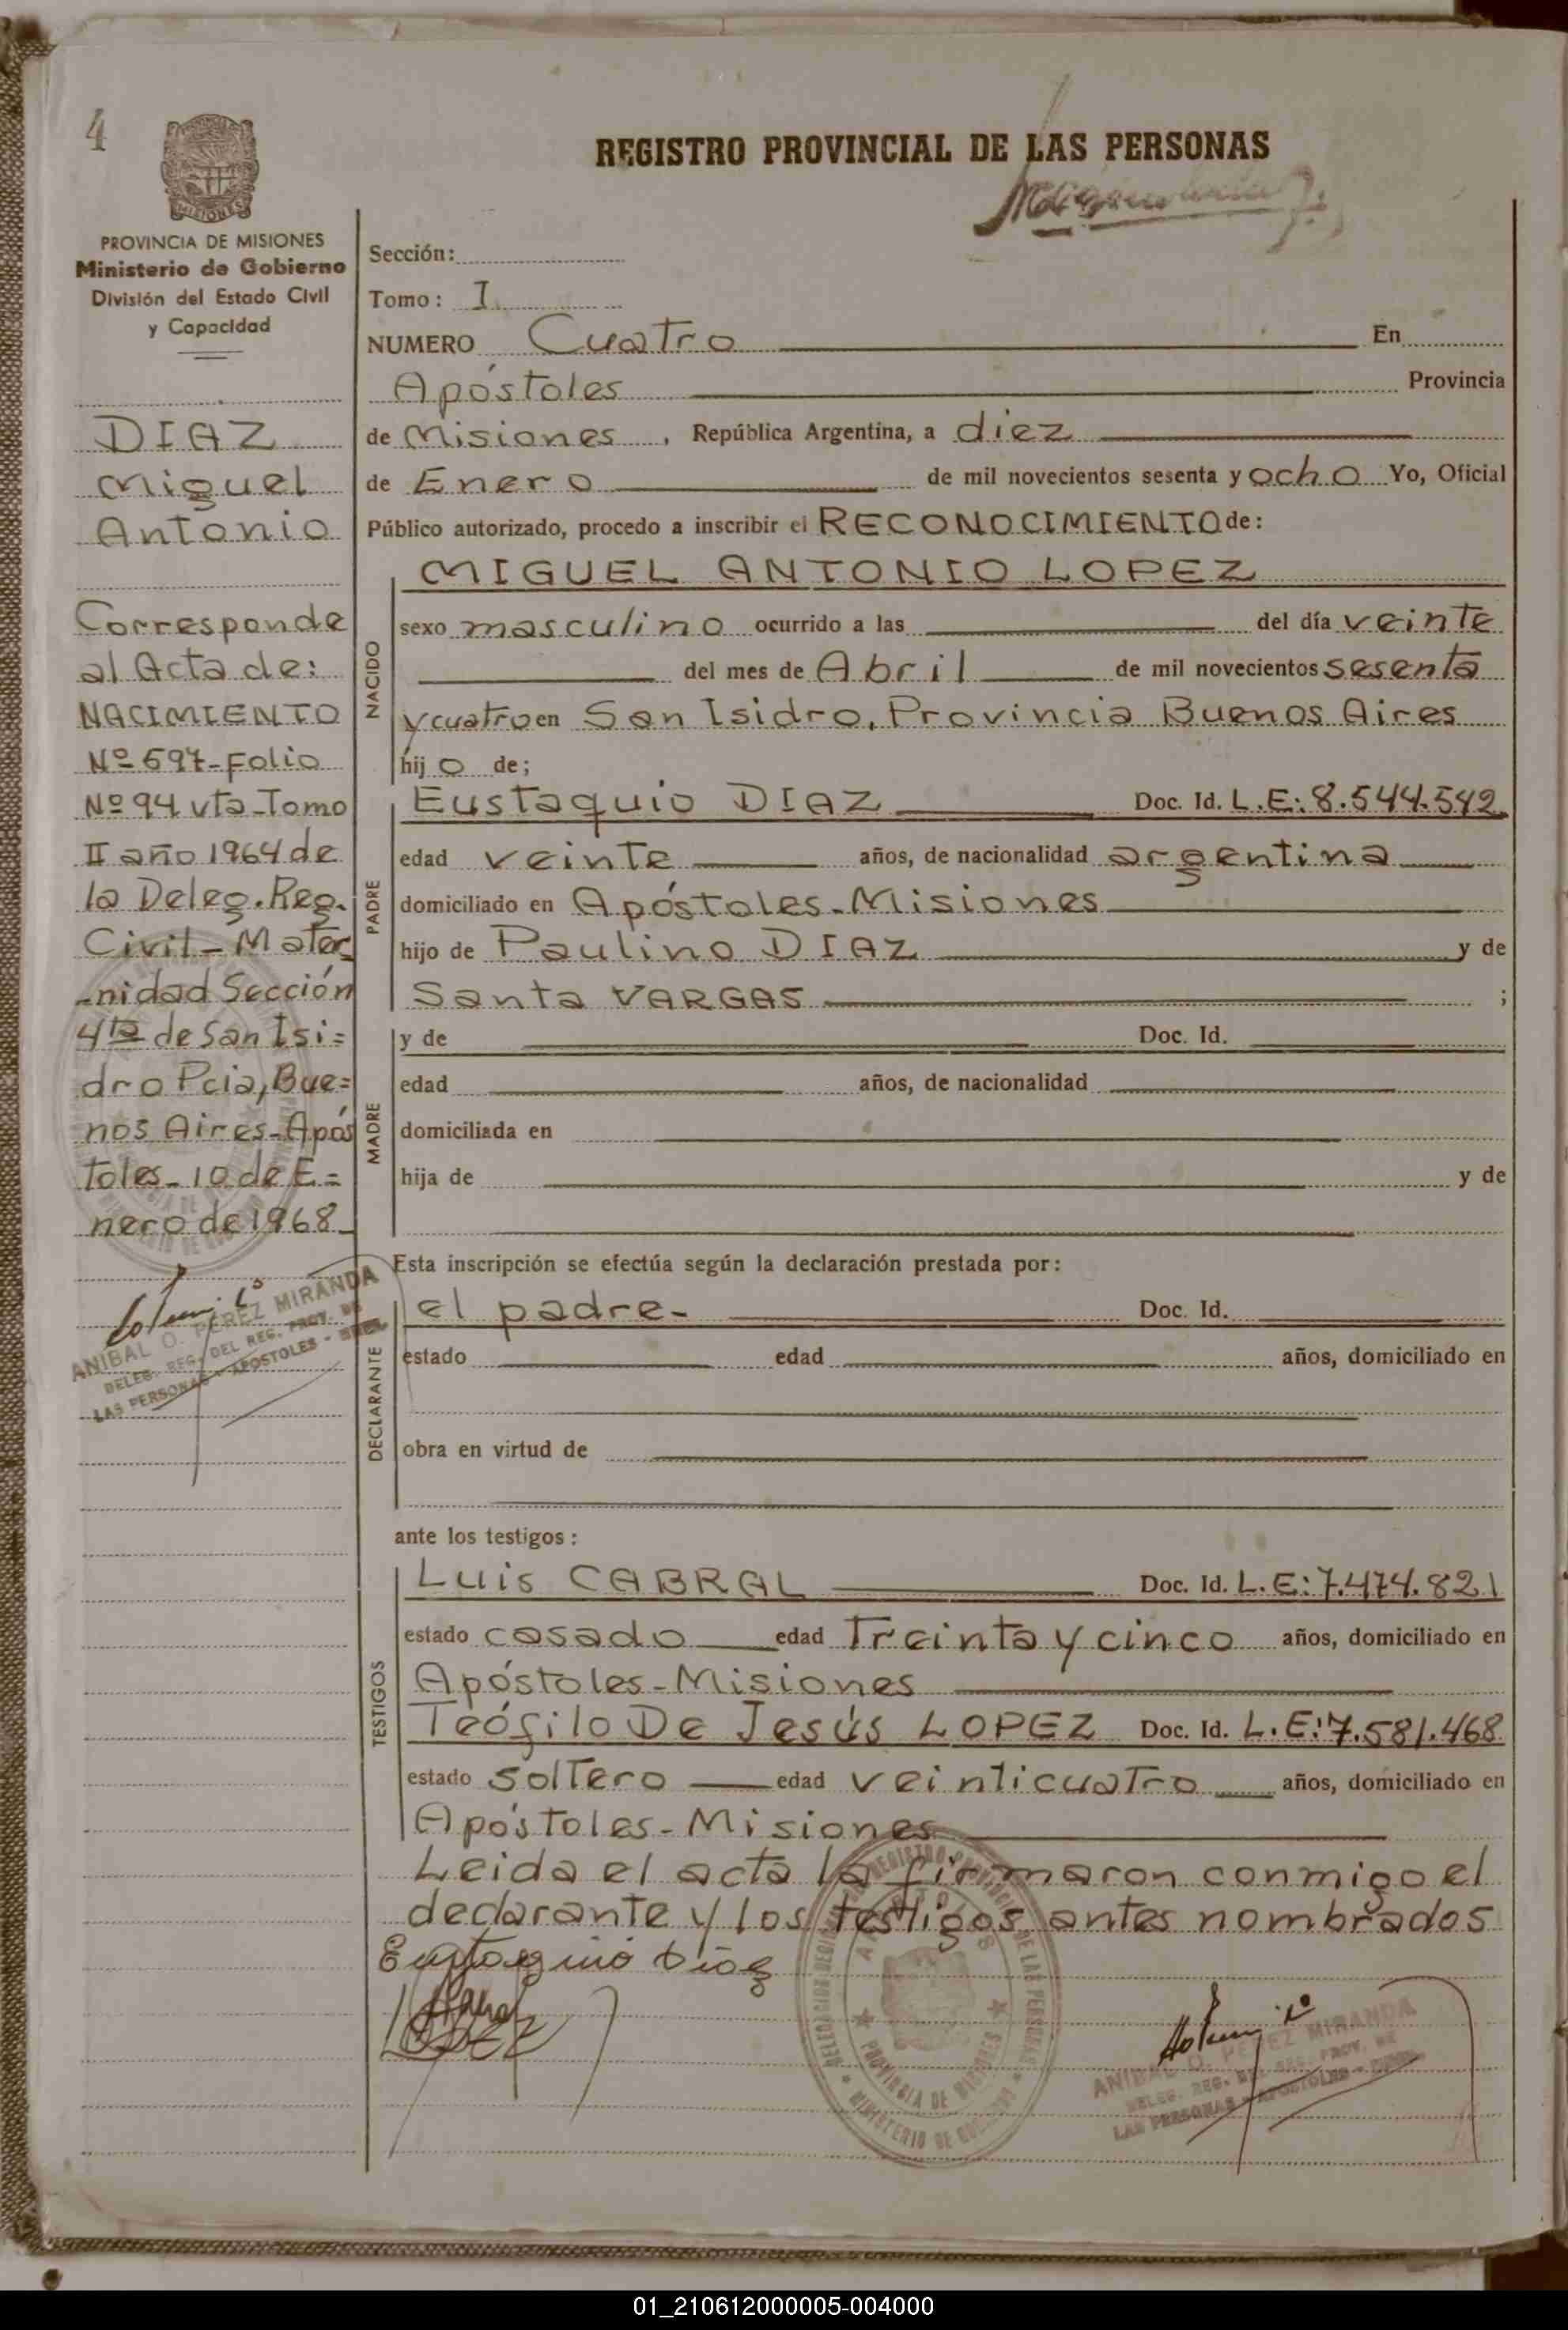 4
MISIONES
PROVINCIA DE MISIONES
Ministerio de Gobierno
División del Estado Civil
y Capacidad
DIAZ
Miguel
Antonio
Corresponde
al Acta de:
NACIMIENTO
Nº 597-Folio
Nº 94 vta-Tomo
II año 1964 de
la Deleg. Reg.
Civil-Mater
-nidad Sección
4ta de San Isi=
dro Pcia, Bue=
nos Aires-Após
toles-10 de E=
nero de 1968-
ANIBAL O. PEREZ MIRANDA
DELEG. REG. DEL REG. PROV. DE
LAS PERSONAS - APOSTOLES -
REGISTRO PROVINCIAL DE LAS PERSONAS
Sección:
Tomo: I
NUMERO Cuatro En
Apóstoles Provincia
de Misiones, República Argentina, a diez
de Enero de mil novecientos sesenta y ocho Yo, Oficial
Público autorizado, procedo a inscribir el RECONOCIMIENTO de:
NACIDO
MIGUEL ANTONIO LOPEZ
sexo masculino ocurrido a las del día veinte
del mes de Abril de mil novecientos sesenta
y cuatro en San Isidro, Provincia Buenos Aires
hij o de;
PADRE
Eustaquio DIAZ Doc. Id. L.E: 8.544.542
edad veinte años, de nacionalidad argentina
domiciliado en Apóstoles-Misiones
hijo de Paulino DIAZ y de
Santa VARGAS ;
MADRE
y de Doc. Id.
edad años, de nacionalidad
domiciliada en
hija de y de
Esta inscripción se efectúa según la declaración prestada por:
DECLARANTE
el padre- Doc. Id.
estado edad años, domiciliado en
obra en virtud de
ante los testigos:
TESTIGOS
Luis CABRAL Doc. Id. L.E: 7.474.821
estado casado edad Treinta y cinco años, domiciliado en
Apóstoles-Misiones
Teófilo De Jesús LOPEZ Doc. Id. L.E: 7.581.468
estado soltero edad veinticuatro años, domiciliado en
Apóstoles-Misiones
Leida el acta la firmaron conmigo el
declarante y los testigos antes nombrados
Eustaquio Diaz
PROVINCIA DE MISIONES
MINISTERIO DE GOBIERNO
ANIBAL O. PEREZ MIRANDA
DELEG. REG. DEL REG. PROV. DE
LAS PERSONAS - APOSTOLES -
01_210612000005-004000